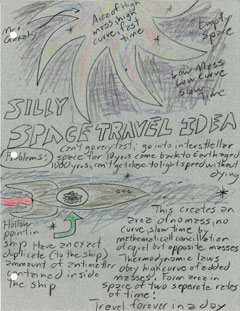 Area of High
mass, high
curve, fast
time
Empty
space
Low Mass
Low curve
slow
time
SILLY
SPACE TRAVEL IDEA
Problems:
Can't go very fast; go into interstellar
space for 10 yrs come back to Earth aged
1000 yrs, can't get close to light speed without
dying
Hollow
point in
ship Have an exact
duplicate (to the ship)
ammount of antimatter
contained inside
the ship
This creates an
area of no mass, no
curve, slow time by
mathematical cancillation
of equel but opposite masses
Thermodynamic laws
obey high curve of added
masses. Form area in
space of two separate rates
of time.
Travel forever in a day